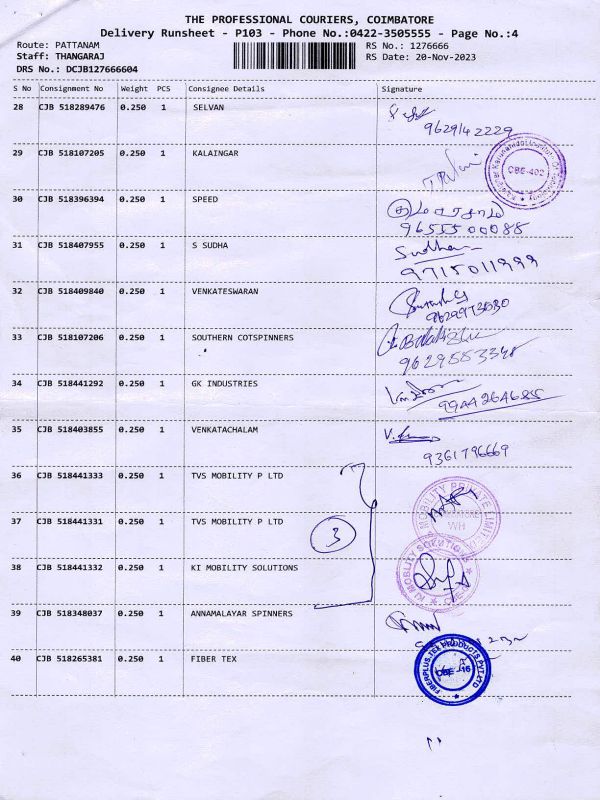 THE PROFESSIONAL COURIERS, COIMBATORE
Delivery Runsheet - P103 - Phone No.:0422-3505555 - Page No.:4
Route: PATTANAM RS No.: 1276666
Staff: THANGARAJ RS Date: 20-Nov-2023
DRS No.: DCJB127666604
S No Consignment No Weight PCS Consignee Details Signature
28 CJB 518289476 0.250 1 SELVAN
9629142229
29 CJB 518107205 0.250 1 KALAINGAR
CBE-402
30 CJB 518396394 0.250 1 SPEED
9655500088
31 CJB 518407955 0.250 1 S SUDHA Sudha
9715011999
32 CJB 518409840 0.250 1 VENKATESWARAN
9629973030
33 CJB 518107206 0.250 1 SOUTHERN COTSPINNERS
34 CJB 518441292 0.250 1 GK INDUSTRIES
9944264685
35 CJB 518403855 0.250 1 VENKATACHALAM
9361796669
36 CJB 518441333 0.250 1 TVS MOBILITY P LTD
MOBILITY PRIVATE LIMITED
WH
37 CJB 518441331 0.250 1 TVS MOBILITY P LTD
3
38 CJB 518441332 0.250 1 KI MOBILITY SOLUTIONS
KI MOBILITY SOLUTIONS
39 CJB 518348037 0.250 1 ANNAMALAYAR SPINNERS
40 CJB 518265381 0.250 1 FIBER TEX
FIBERPLUS TEK PRODUCTS PVT LTD
CBE -16